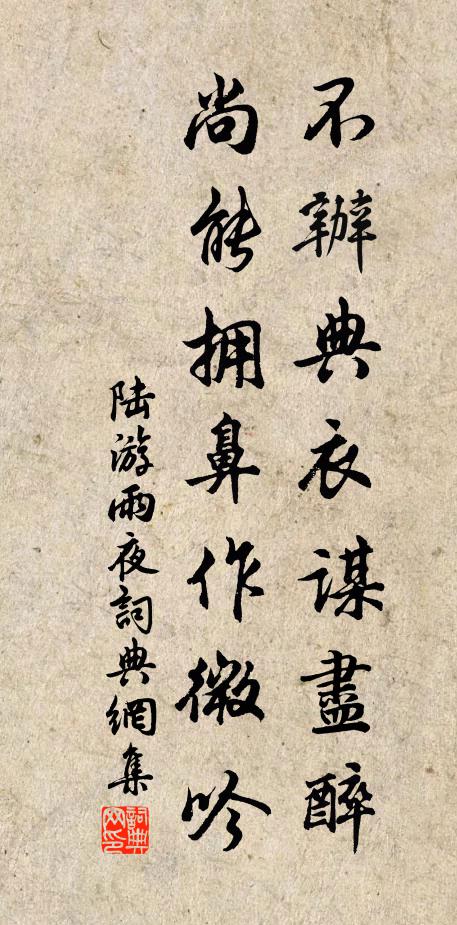 不辦典衣謀盡醉
尚能拥鼻作微吟
陆游雨夜詞典網集
詞典网印